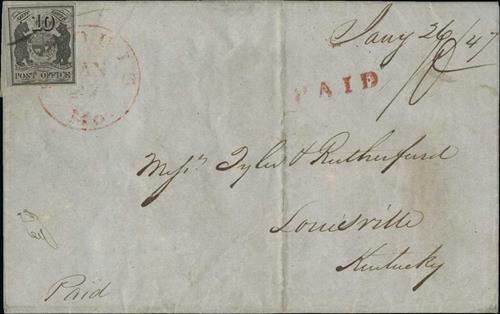 10
POST OFFICE
LOUIS
JAN
Mo.
PAID
Jany 26/47
10
Messrs Tyler & Rutherford
Louisville
Kentucky
Paid